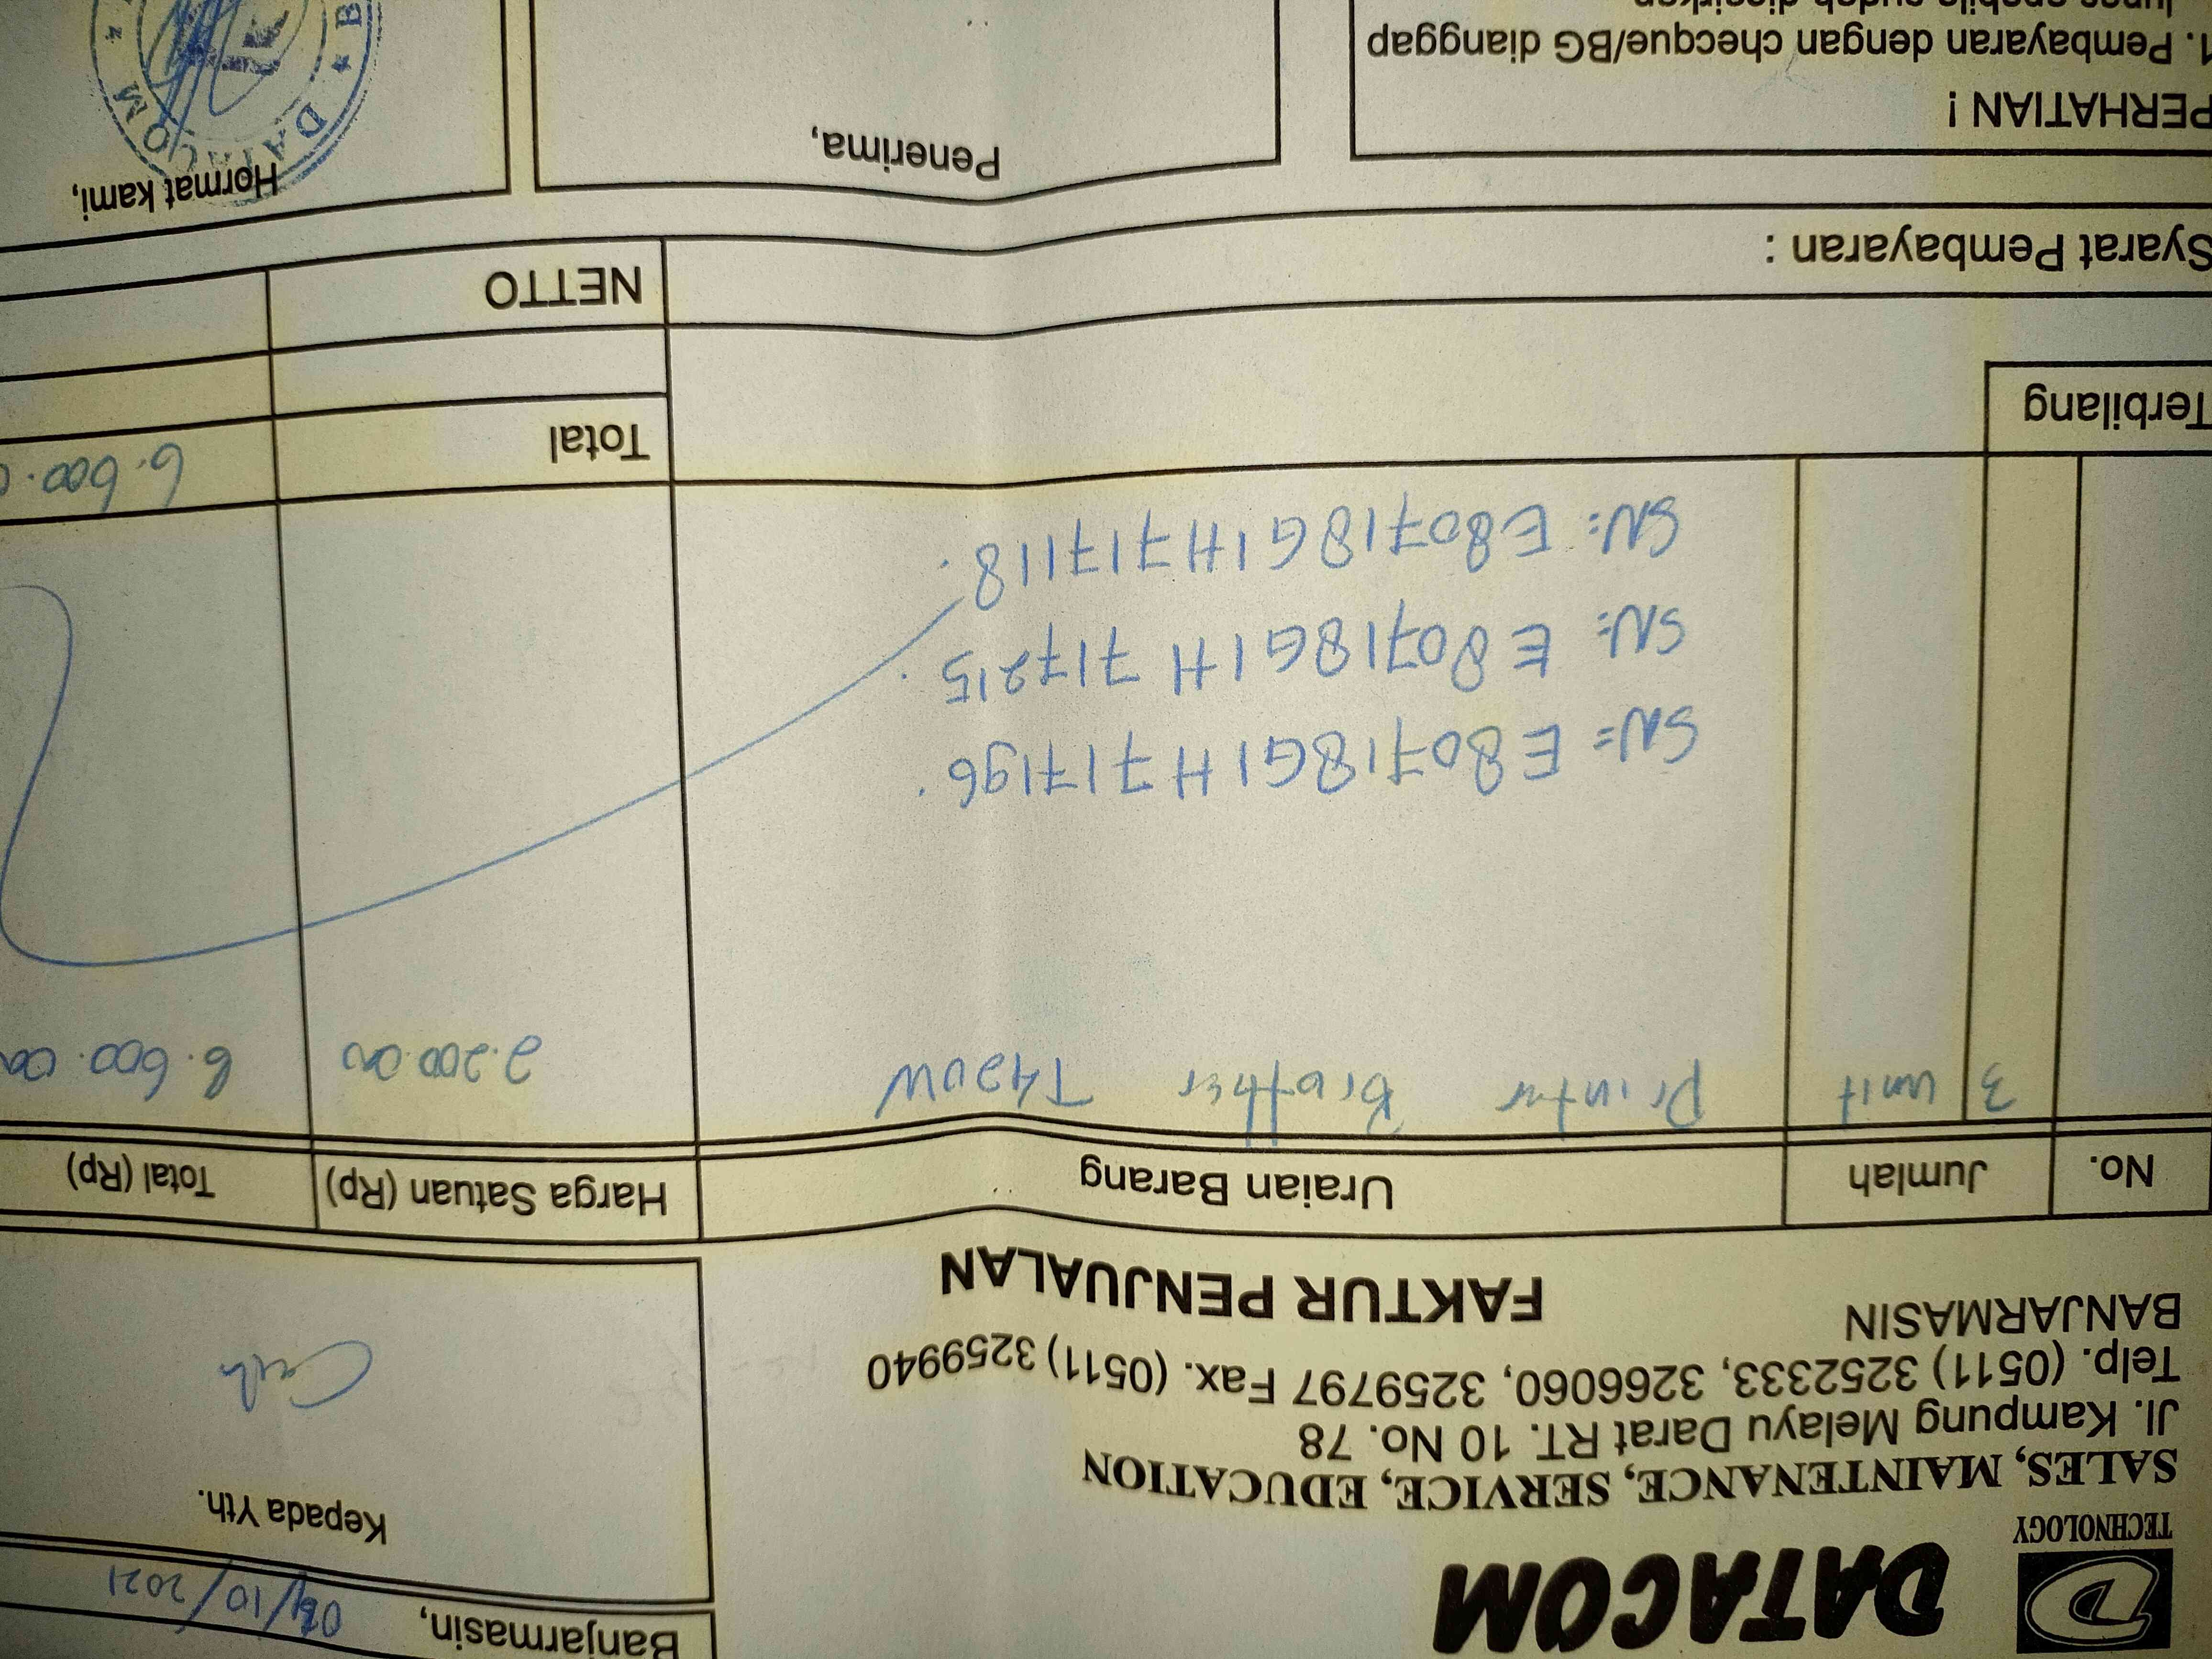 DATACOM
TECHNOLOGY
SALES, MAINTENANCE, SERVICE, EDUCATION
Jl. Kampung Melayu Darat RT. 10 No. 78
Telp. (0511) 3252333, 3266060, 3259797 Fax. (0511) 3259940
BANJARMASIN
FAKTUR PENJUALAN
Banjarmasin, /10/2021
Kepada Yth.
Cash
No. Jumlah Uraian Barang Harga Satuan (Rp) Total (Rp)
3 unit Printer Brother T420W 2.200.000 6.600.00
SN= E80718G1H717196.
SN: E80718G1H717215.
SN: E80718G1H717118.
Total 6.600.0
Terbilang
NETTO
Syarat Pembayaran :
PERHATIAN !
1. Pembayaran dengan checque/BG dianggap
Penerima,
Hormat kami,
DATACOM